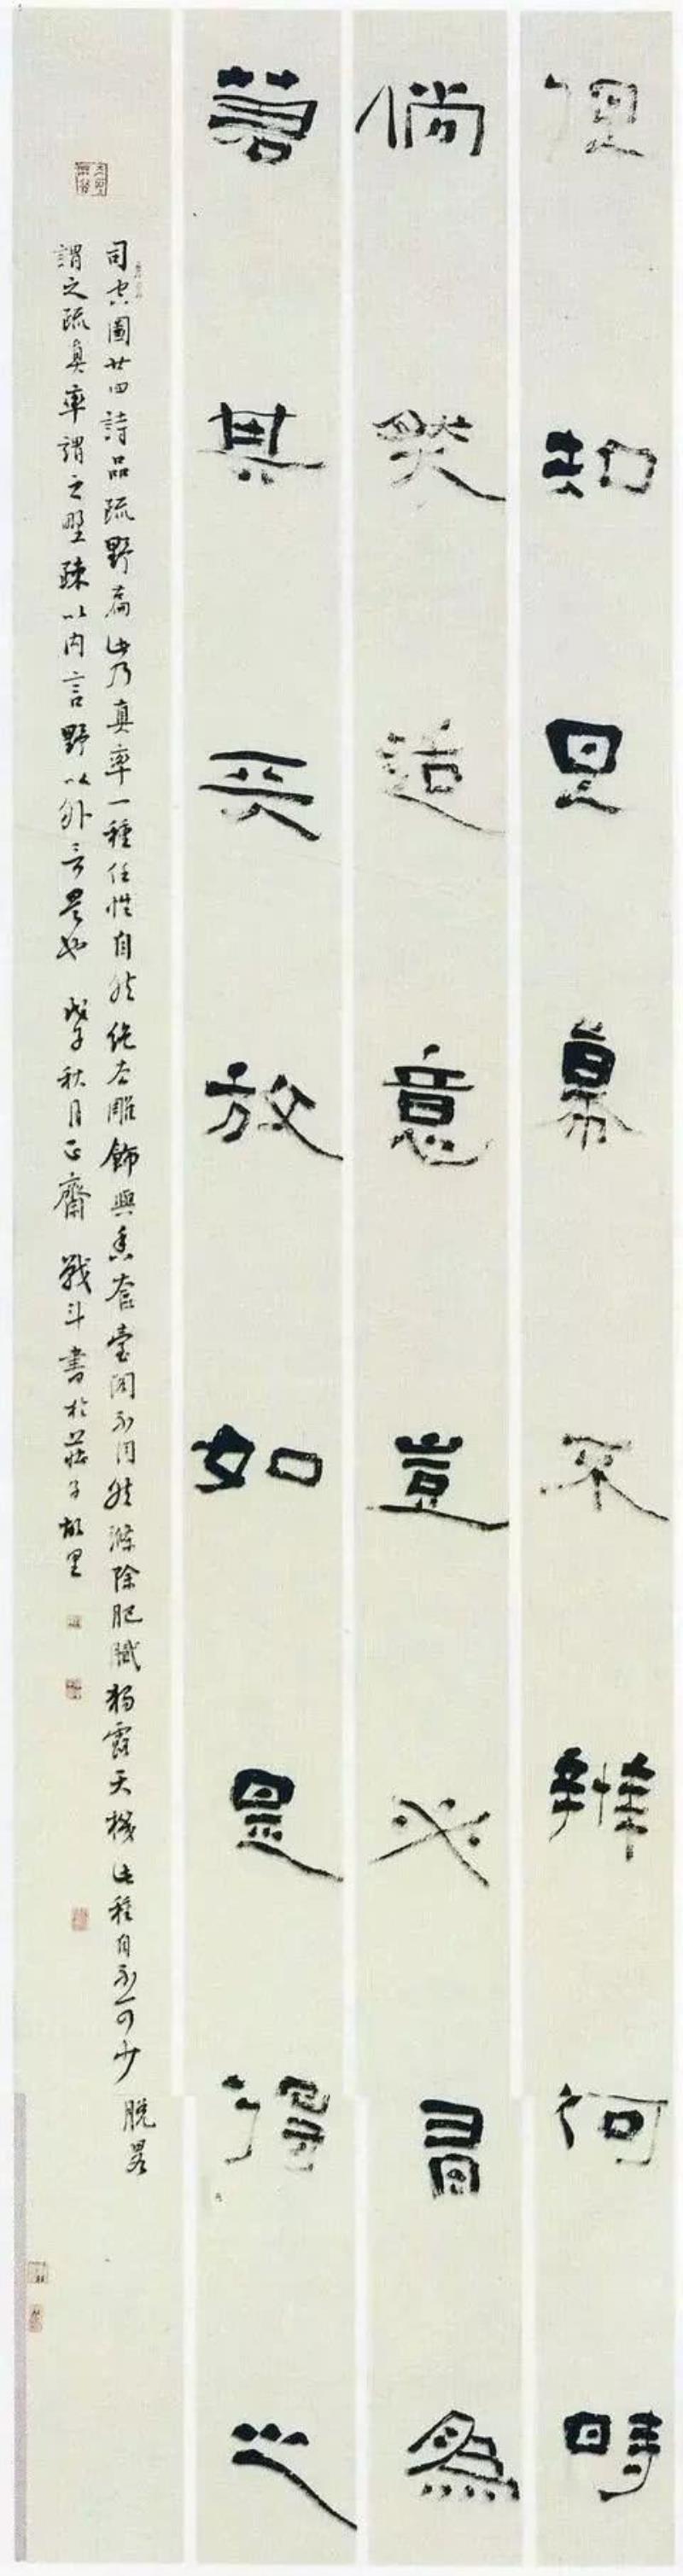 但知旦暮不辨何時
倘然適意豈必有為
若其天放如是得之
司空圖廿四詩品疏野篇此乃真率一種任性自然絕去雕飾與香奩臺閣不同然滌除肥膩獨露天機此種自不可少 脫略
謂之疏真率謂之野疎以內言野以外言是也 戊子秋月正齋戰斗書於莊子故里